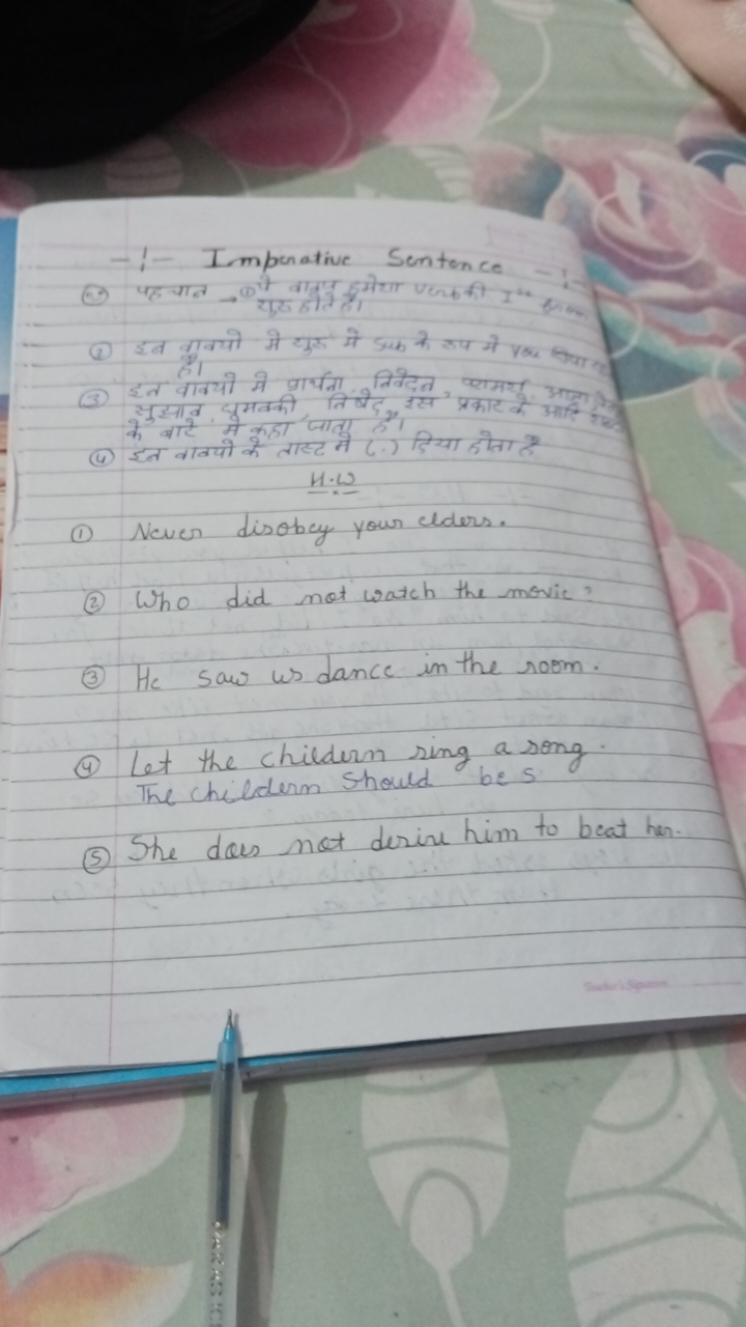 -!- Imperative Sentence -!-
पहचान → ① ये वाक्य हमेशा verb की Ist form
शुरू होते है।
② इन वाक्यो मे शुरू मे Sub के रूप मे you छिपा
है।
③ इन वाक्यो मे प्रार्थना, निवेदन, परामर्श, आज्ञा
सुझाव, धुमक्की, निषेद, इस प्रकार के आदि
के बारे मे कहा जाता है।
④ इन वाक्यो के लास्ट मे (.) दिया होता है
H.W
① Never disobey your elders.
② Who did not watch the movie?
③ He saw us dance in the room.
④ Let the childern sing a song.
The childern should be s
⑤ She does not desire him to beat her.